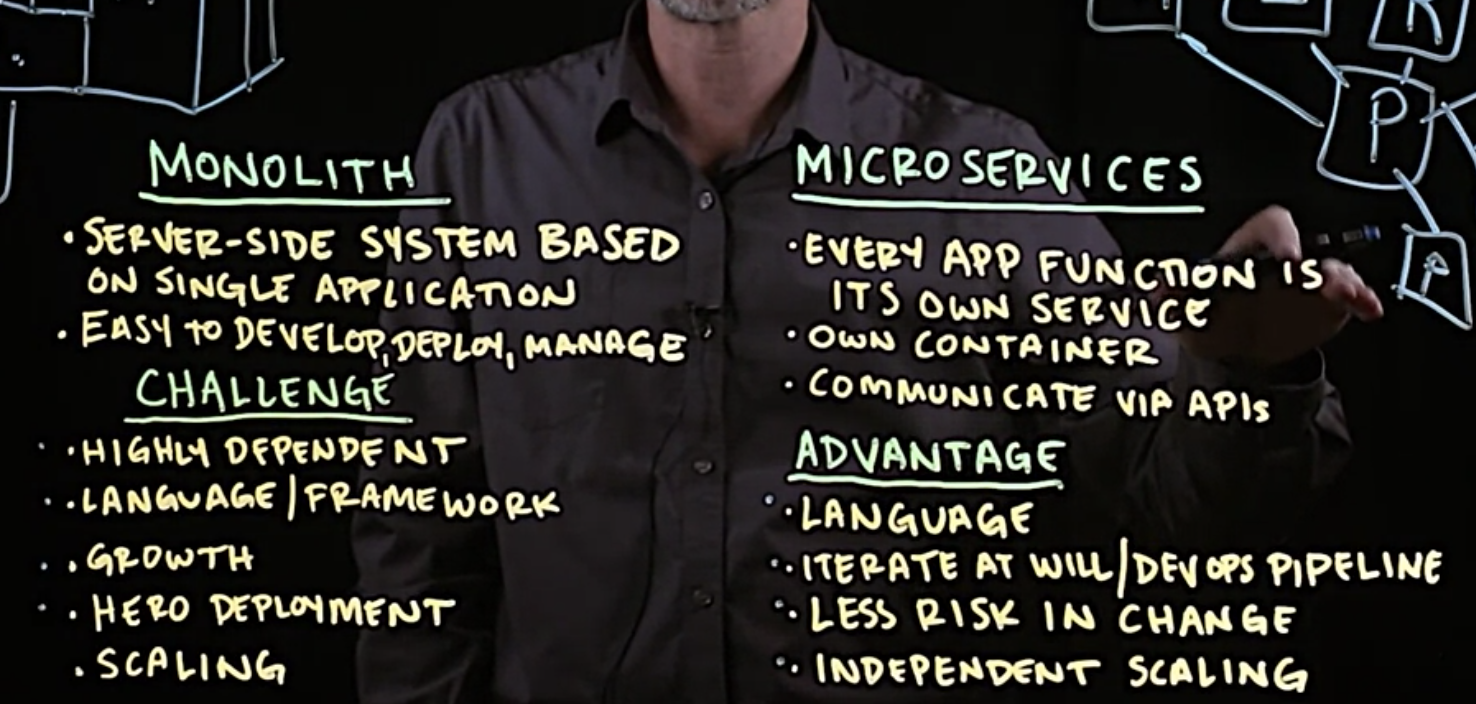 MONOLITH
• SERVER-SIDE SYSTEM BASED
ON SINGLE APPLICATION
• EASY TO DEVELOP, DEPLOY, MANAGE
CHALLENGE
• HIGHLY DEPENDENT
• LANGUAGE/FRAMEWORK
• GROWTH
• HERO DEPLOYMENT
• SCALING
MICROSERVICES
• EVERY APP FUNCTION IS
ITS OWN SERVICE
• OWN CONTAINER
• COMMUNICATE VIA APIs
ADVANTAGE
• LANGUAGE
• ITERATE AT WILL/DEVOPS PIPELINE
• LESS RISK IN CHANGE
• INDEPENDENT SCALING
R
P
P